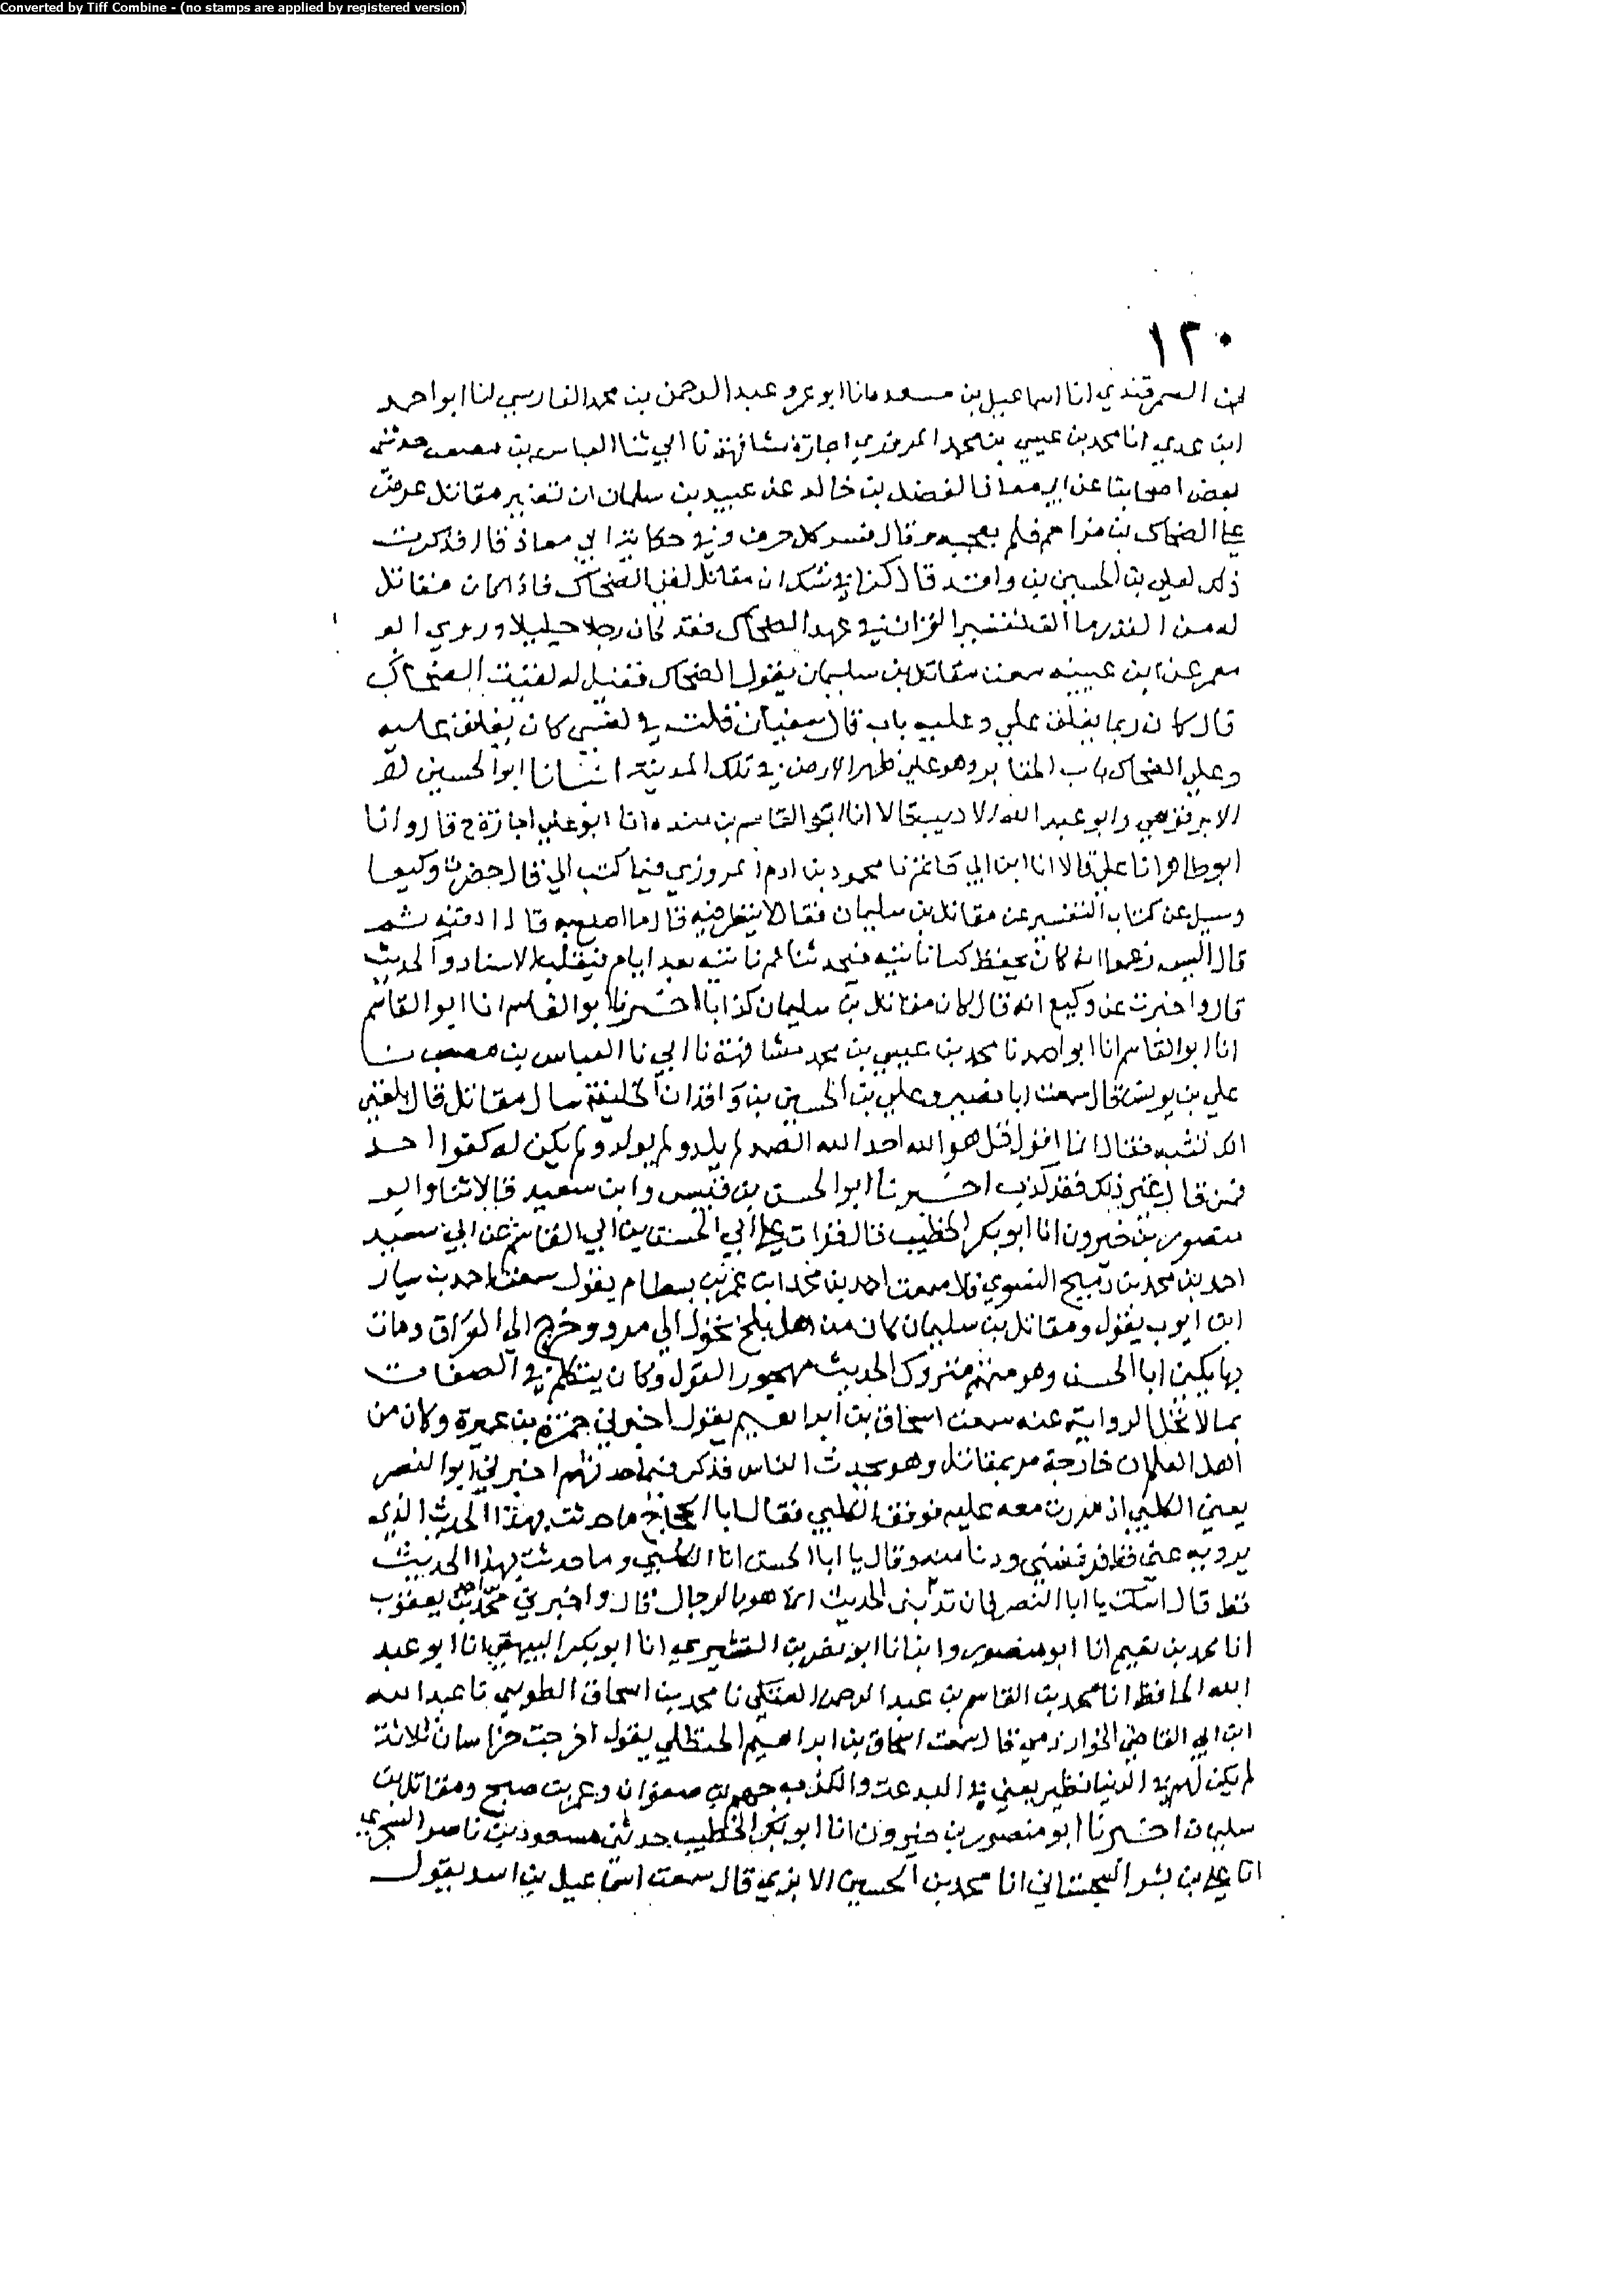 Converted by Tiff Combine - (no stamps are applied by registered version)
١٢٠
بن السمرقندي انا اسماعيل بن مسعده انا ابو عمرو عبد الرحمن بن محمد الفارسي انا ابو احمد
ابن عدي انا محمد بن عيسي بن محمد المروزي اجازة مشافهة نا ابي ثنا العباس بن مصعب حدثني
بعض اصحابنا عن ابي معاذ الفضل بن خالد عن عبيد بن سلمان ان تفسير مقاتل عرض
علي الضحاك بن مزاحم فلم يعجبه وقال فسر كل حرف وفي حكاية ابي معاذ قال فذكرت
ذلك لعلي بن الحسين بن واقد قال كنا في شك ان مقاتل لقي الضحاك فاذا كان مقاتل
له من القدر ما الف تفسير القران في عهد الضحاك فقد كان رجلا جليلا وروي ابو
معمر عن ابن عيينه سمعت مقاتل بن سليمان يقول الضحاك فقيل له لقيت الضحاك
قال كان ربما يغلق علي وعليه باب قال سفيان قلت في نفسي كان يغلق عليه
وعلي الضحاك باب المقابر وهو علي ظهر الارض في تلك المدينة انبانا ابو الحسين
الابرقوهي وابو عبد الله الاديب قالا انا ابو القاسم بن منده انا ابو علي اجازة ح قال وانا
ابو طاهر انا علي قالا انا ابن ابي حاتم نا محمود بن ادم المروزي فيما كتب الي قال حضرت وكيعا
وسيل عن كتاب التفسير عن مقاتل بن سليمان فقال لا ينظر فيه قال ما اصنع به قال ادفنه ثم
قال اليس زعموا انه كان يحفظ كنا ناتيه فيحدثنا ثم ناتيه بعد ايام فيقلب الاسناد والحديث
قال واخبرت عن وكيع انه قال كان مقاتل بن سليمان كذابا اخبرنا ابو القاسم انا ابو القاسم
انا ابو القاسم انا ابو احمد نا محمد بن عيسي بن محمد مشافهة نا ابي نا العباس بن مصعب نا
علي بن يونس قال سمعت ابا نصير وعلي بن الحسين بن واقد ان الخليفة سال مقاتل قال بلغني
انك تشبه فقال انما اقول قل هو الله احد الله الصمد لم يلد ولم يولد ولم يكن له كفوا احد
فمن قال غير ذلك فقد كذب اخبرنا ابو الحسن بن قبيس وابن سعيد قالا ثنا وابو
منصور بن خيرون انا ابو بكر الخطيب قال قرات علي ابي الحسن بن ابي القاسم عن ابي سعيد
احمد بن محمد بن رميح النسوي قال سمعت احمد بن محمد ابن عمر بن بسطام يقول سمعت احمد بن سيار
ابن ايوب يقول ومقاتل بن سليمان كان من اهل بلخ تحول الي مرو وخرج الي العراق ومات
بها يكني ابا الحسن وهو متهم متروك الحديث مهجور القول وكان يتكلم في الصفات
بما لا تحل الرواية عنه سمعت اسحاق بن ابراهيم يقول اخبرني حمزة بن عميرة وكان من
اهل العلم ان خارجة مر بمقاتل وهو يحدث الناس فذكر فيما حدثهم اخبرني ابو النصر
يعني الكلبي اذ مررت معه عليه فوقف الكلبي فقال يا ابا الحجاج ما حدثت بهذا الحديث الذي
يرويه عني ودنا منه وقال يا ابا الحسن انا الكلبي وما حدثت بهذا الحديث
قط قال اسكت يا ابا النصر فان تزيين الحديث انما هو بالرجال قال واخبرني محمد بن احمد بن يعقوب
انا محمد بن نعيم انا ابو منصور وانبانا ابو نصر بن القشيري انا ابو بكر البيهقي انا ابو عبد
الله الحافظ انا محمد بن القاسم بن عبد الرحمن العتكي نا محمد بن اسحاق الطوسي نا عبد الله
ابن ابي القاضي الخوارزمي قال سمعت اسحاق بن ابراهيم الحنظلي يقول اخرجت خراسان ثلاثة
لم يكن لهم في الدنيا نظير يعني في البدعة والكذب جهم بن صفوان وعمر بن صبح ومقاتل بن
سليمان اخبرنا ابو منصور بن خيرون انا ابو بكر الخطيب حدثني مسعود بن ناصر السجزي
انا علي بن بشر السجستاني انا محمد بن الحسين الابزي قال سمعت اسماعيل بن اسد يقول